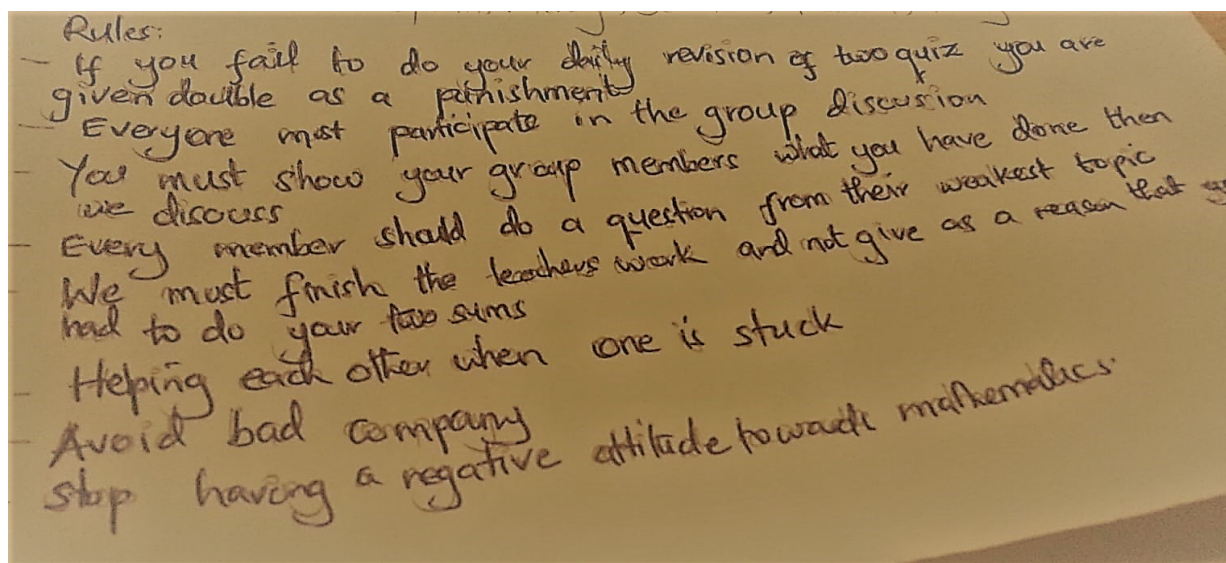 Rules:
- If you fail to do your daily revision of two quiz you are
given double as a punishment
- Everyone must participate in the group discusion
- You must show your group members what you have done then
we discuss
- Every member should do a question from their weakest topic
We must finish the teachers work and not give as a reason that
had to do your two sums
- Helping each other when one is stuck
- Avoid bad company
stop having a negative attitude towards mathematics.